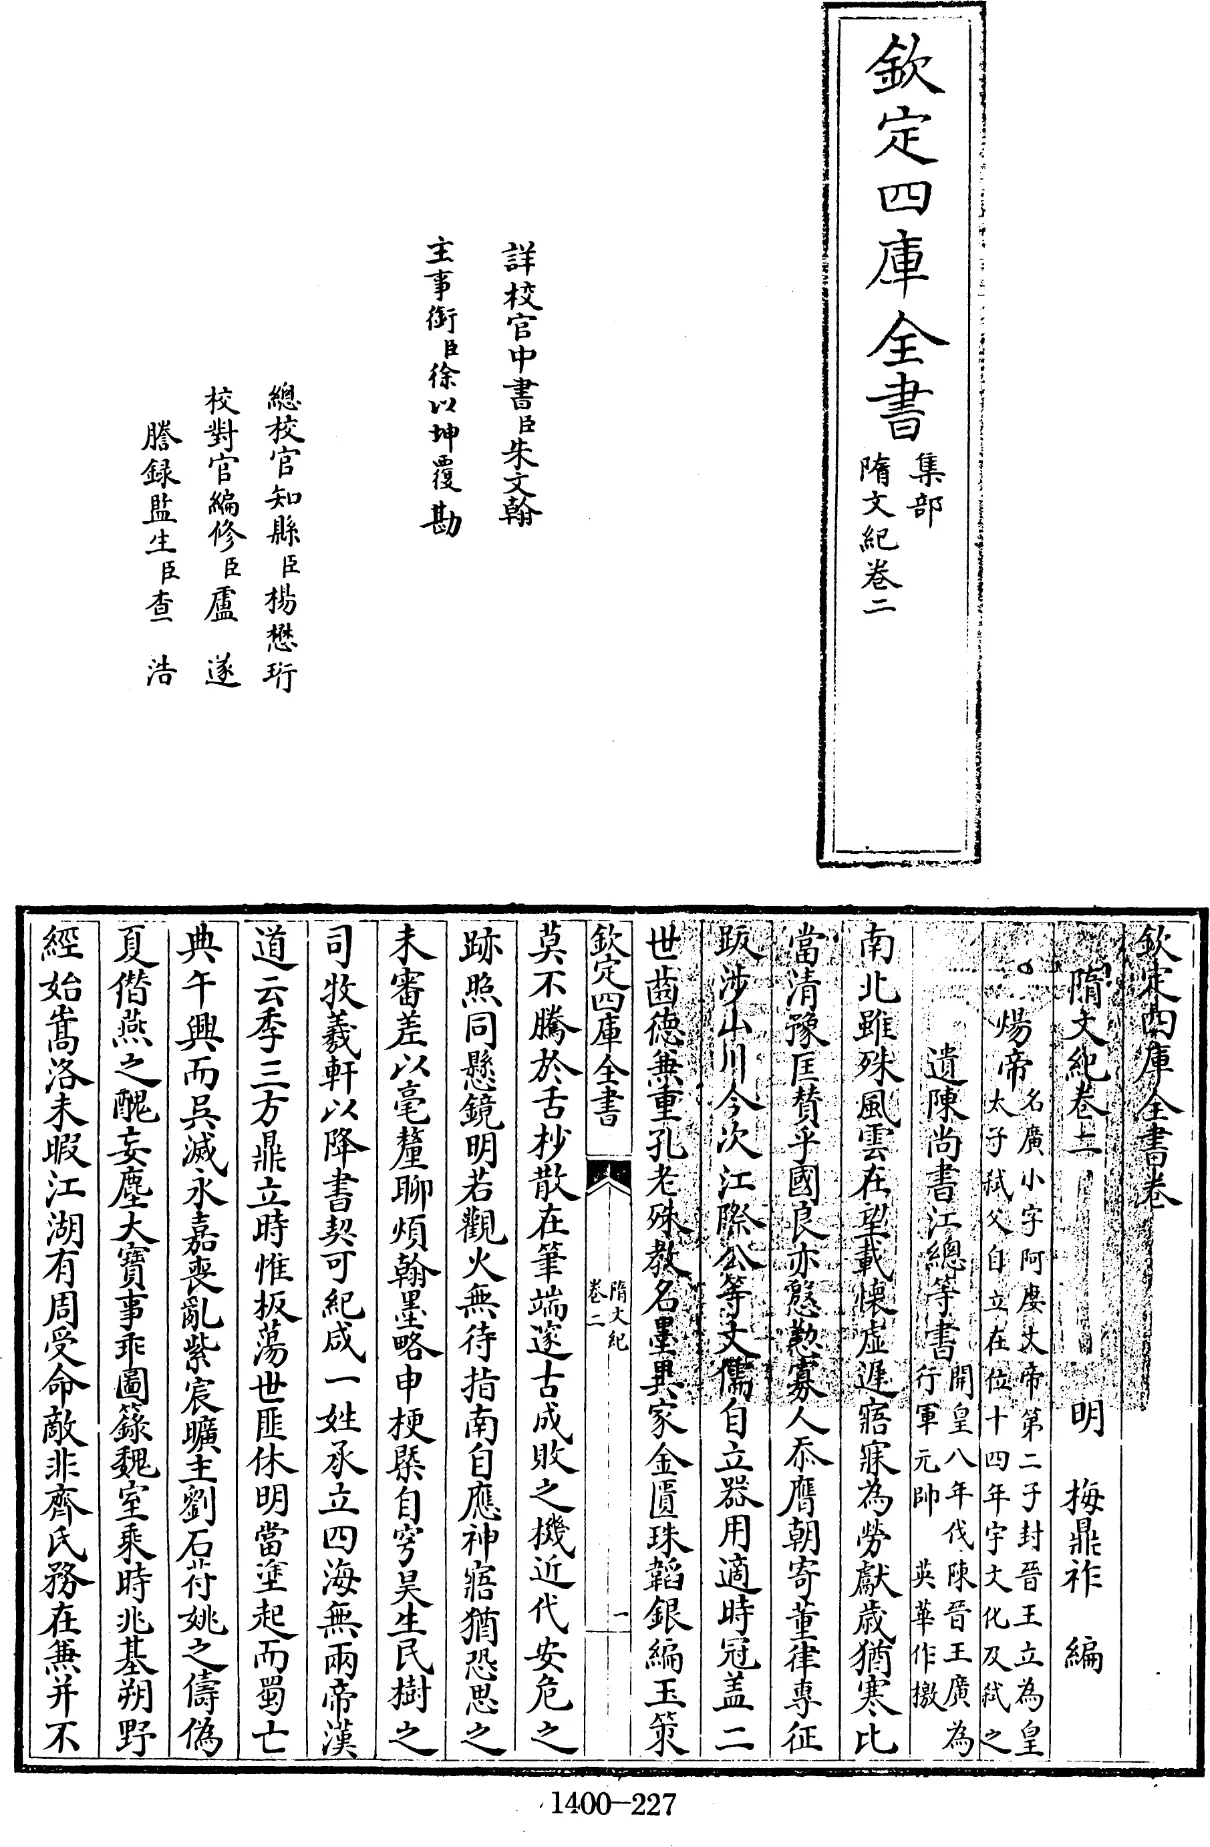 欽定四庫全書
集部
隋文紀卷二
詳校官中書臣朱文翰
主事銜臣徐以坤覆勘
總校官知縣臣楊懋珩
校對官編修臣盧遂
謄録監生臣查浩
欽定四庫全書卷
隋文紀卷二 明 梅鼎祚 編
煬帝
名廣小字阿𡡉文帝第二子封晉王立為皇
太子弑父自立在位十四年宇文化及弑之
遺陳尚書江總等書
開皇八年伐陳晉王廣為
行軍元帥 英華作檄
南北雖殊風雲在望載懷虛遲寤寐為勞獻歲猶寒比
當清豫匡贊乎國良亦慇懃寡人忝膺朝寄董律專征
跋涉山川今次江際公等文儒自立器用適時冠盖二
世齒德兼重孔老殊教名墨異家金匱珠韜銀編玉策
欽定四庫全書
隋文紀
卷二
一
莫不騰於舌杪散在筆端邃古成敗之機近代安危之
跡照同懸鏡明若觀火無待指南自應神寤猶恐思之
未審差以毫釐聊煩翰墨略申梗槩自穹昊生民樹之
司牧羲軒以降書契可紀咸一姓承立四海無兩帝漢
道云季三方鼎立時惟板蕩世匪休明當塗起而蜀亡
典午興而吳滅永嘉喪亂紫宸曠主劉石苻姚之儔偽
夏僭燕之醜妄塵大寶事乖圖籙魏室乘時兆基朔野
經始嵩洛未暇江湖有周受命敵非齊氏務在兼并不
1400-227